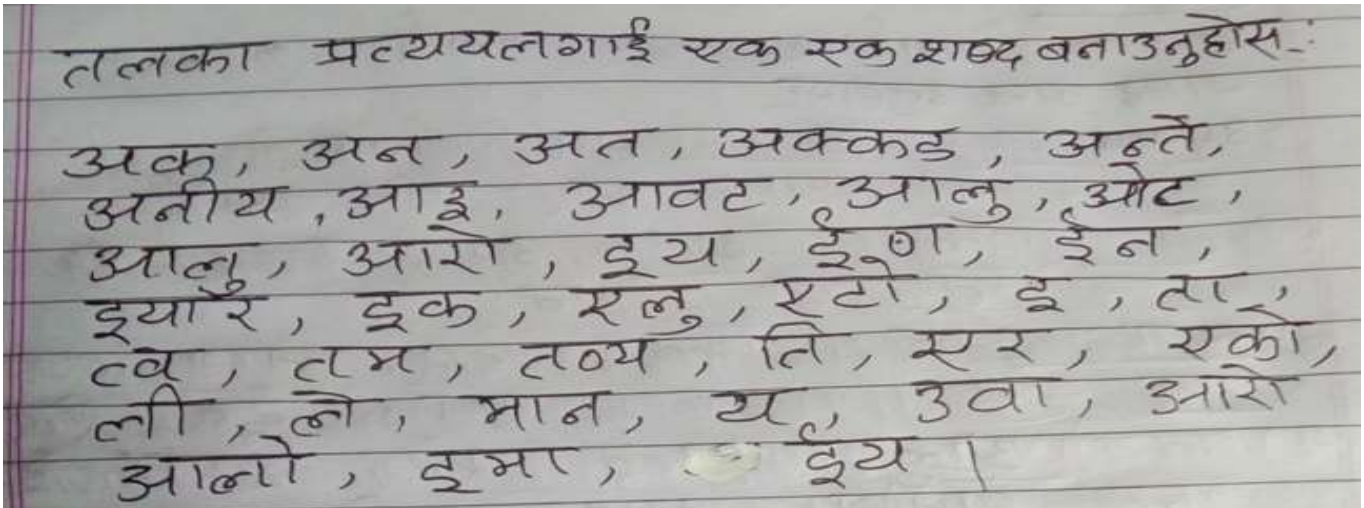 तलका प्रत्ययलगाई एक एक शब्द बनाउनुहोस :
अक, अन, अत, अक्कड, अन्ते,
अनीय, आइ, आवट, आलु, ओट,
आलु, आरो, इय, ईण, ईन,
इयार, इक, एलु, एटो, इ, ता,
त्व, तम, तव्य, ति, एर, एको,
ली, ले, मान, य, उवा, आरो
आलो, इमा, ईय ।